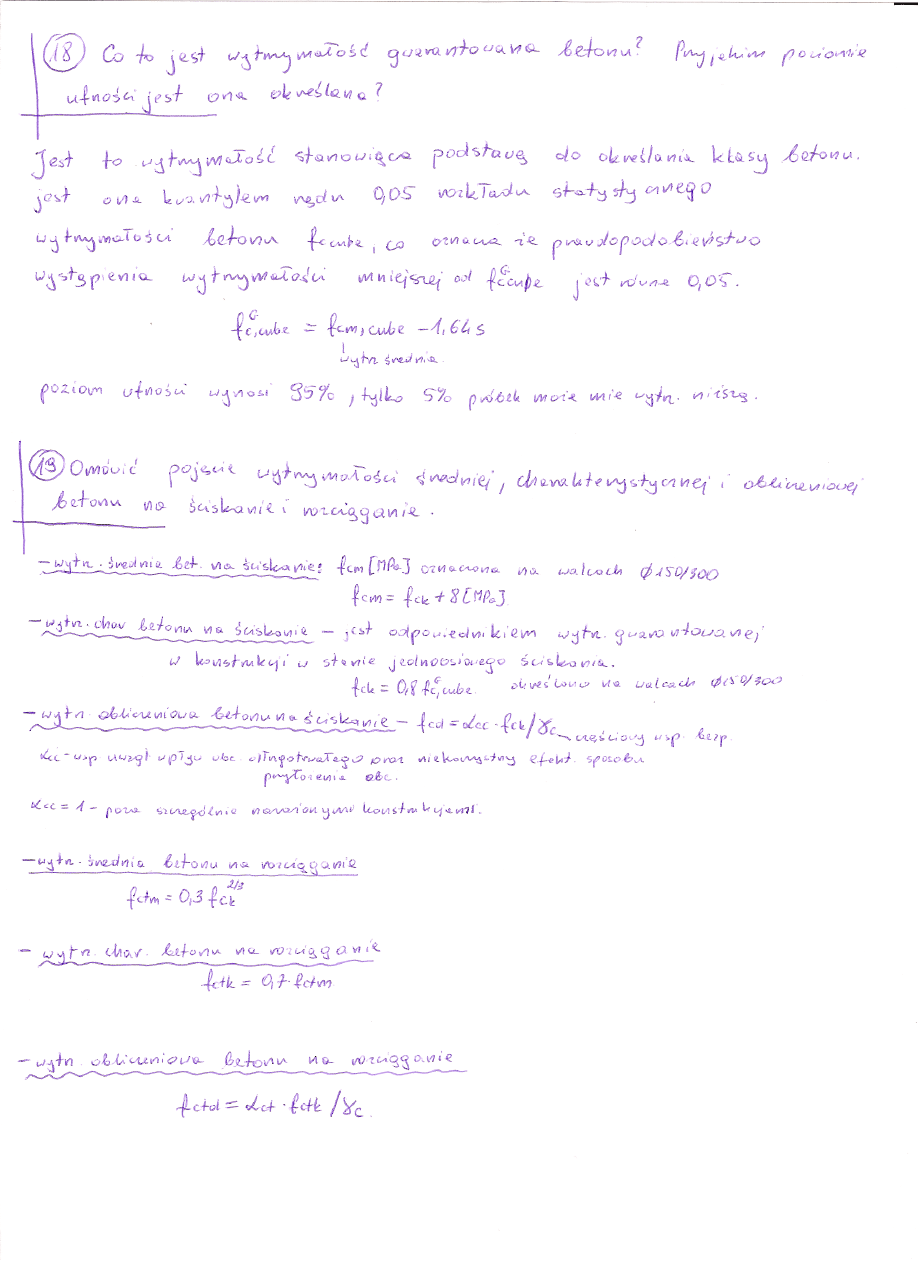 18 Co to jest wytrzymałość gwarantowana betonu? Przy jakim poziomie
ufności jest ona określana?
Jest to wytrzymałość stanowiąca podstawę do określania klasy betonu.
jest ona kwantylem rzędu 0,05 rozkładu statystycznego
wytrzymałości betonu fc,cube, co oznacza że prawdopodobieństwo
wystąpienia wytrzymałości mniejszej od fᴳc,cube jest równe 0,05.
fᴳc,cube = fcm,cube - 1,64 s
wytrz średnia
poziom ufności wynosi 95%, tylko 5% próbek może mie wytrz. niższą.
19 Omówić pojęcie wytrzymałości średniej, charakterystycznej i obliczeniowej
betonu na ściskanie i rozciąganie.
- wytrz. średnia bet. na ściskanie: fcm [MPa] oznaczona na walcach Ø150/300
fcm = fck + 8 [MPa]
- wytrz. char betonu na ściskanie - jest odpowiednikiem wytrz. gwarantowanej
w konstrukcji w stanie jednoosiowego ściskania.
fck = 0,8 fᴳc,cube określono na walcach Ø150/300
- wytrz obliczeniowa betonu na ściskanie - fcd = αcc · fck / γc częściowy wsp. bezp.
αcc - wsp uwzgl wpływ obc. długotrwałego oraz niekorzystny efekt sposobu
przyłożenia obc.
αcc = 1 - poza szczególnie narażonymi konstrukcjami.
- wytrz. średnia betonu na rozciąganie
fctm = 0,3 fck^2/3
- wytrz. char. betonu na rozciąganie
fctk = 0,7 · fctm
- wytrz obliczeniowa betonu na rozciąganie
fctd = αct · fctk / γc.